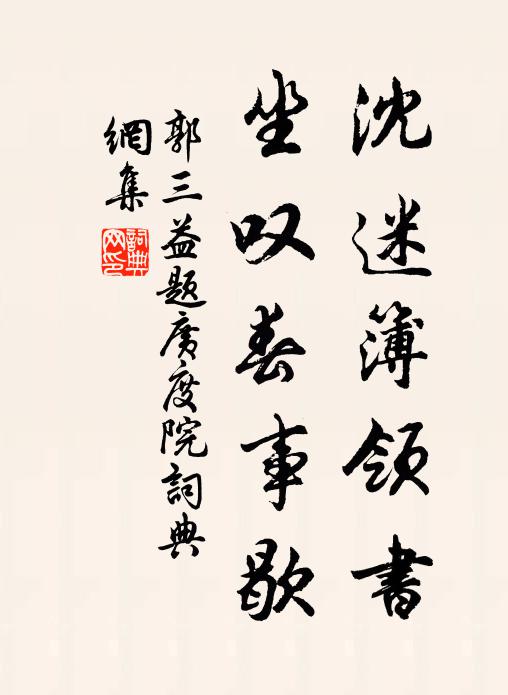 沈迷簿领書
坐叹春事歇
郭三益题廣度院詞典
網集
詞典網印